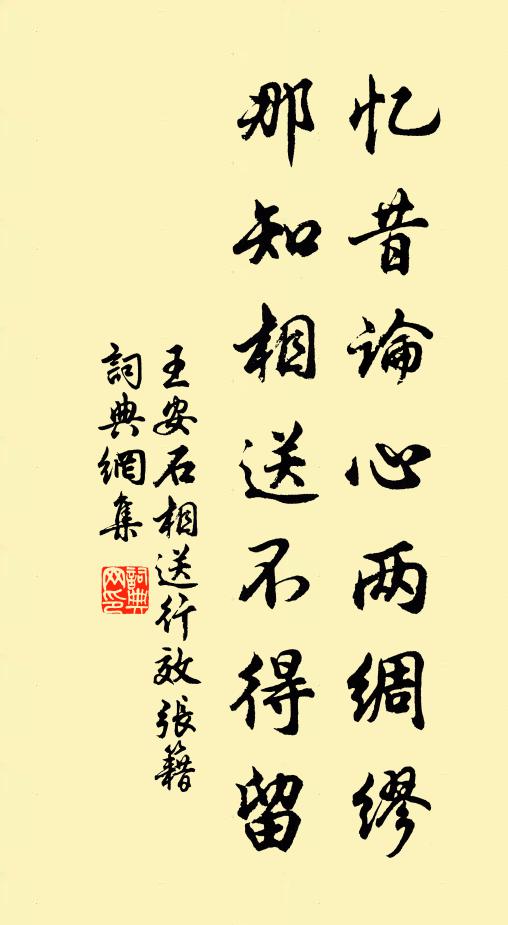 忆昔論心两綢繆
那知相送不得留
王安石相送行效張籍
詞典網集
詞典网印